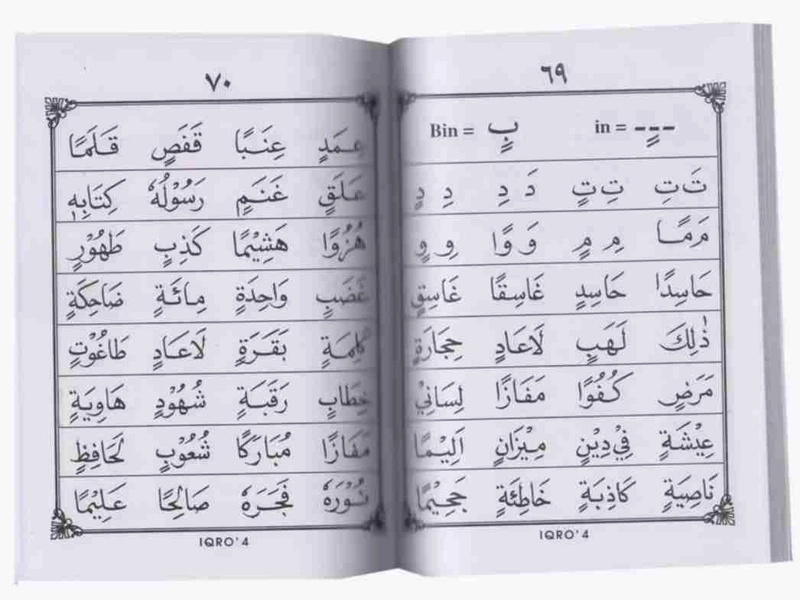 ٦٩
in = ـٍـ Bin = بٍ
تَ تِ تِ تٍ دَ دِ دِ دٍ
مَ مًا مِ مٍ وَ وًا وِ وٍ
حَاسِدًا حَاسِدٍ غَاسِقًا غَاسِقٍ
ذٰلِكَ لَهَبٍ لَاعَادٍ حِجَارَةٍ
مَرَضٍ كُفُوًا مَفَازًا لِسَانِيْ
عِيْشَةٍ فِيْ دِيْنٍ مِيْزَانٍ اَلِيْمًا
نَاصِيَةٍ كَاذِبَةٍ خَاطِئَةٍ جَحِيْمًا
IQRO' 4
٧٠
عَمَدٍ عِنَبًا قَفَصٍ قَلَمًا
عَلَقٍ غَنَمٍ رَسُوْلُهٗ كِتَابِهٖ
هُزُوًا هَشِيْمًا كَذِبٍ طَهُوْرٍ
غَضَبٍ وَاحِدَةٍ مِائَةٍ ضَاحِكَةٍ
كَلِمَةٍ بَقَرَةٍ لَاعَادٍ طَاغُوْتٍ
خِطَابٍ رَقَبَةٍ شُهُوْدٍ هَاوِيَةٍ
مَفَازًا مُبَارَكًا شُعُوْبٍ لَحَافِظٍ
نُوْرَهٗ فَجَرَهٗ صَالِحًا عَلِيْمًا
IQRO' 4